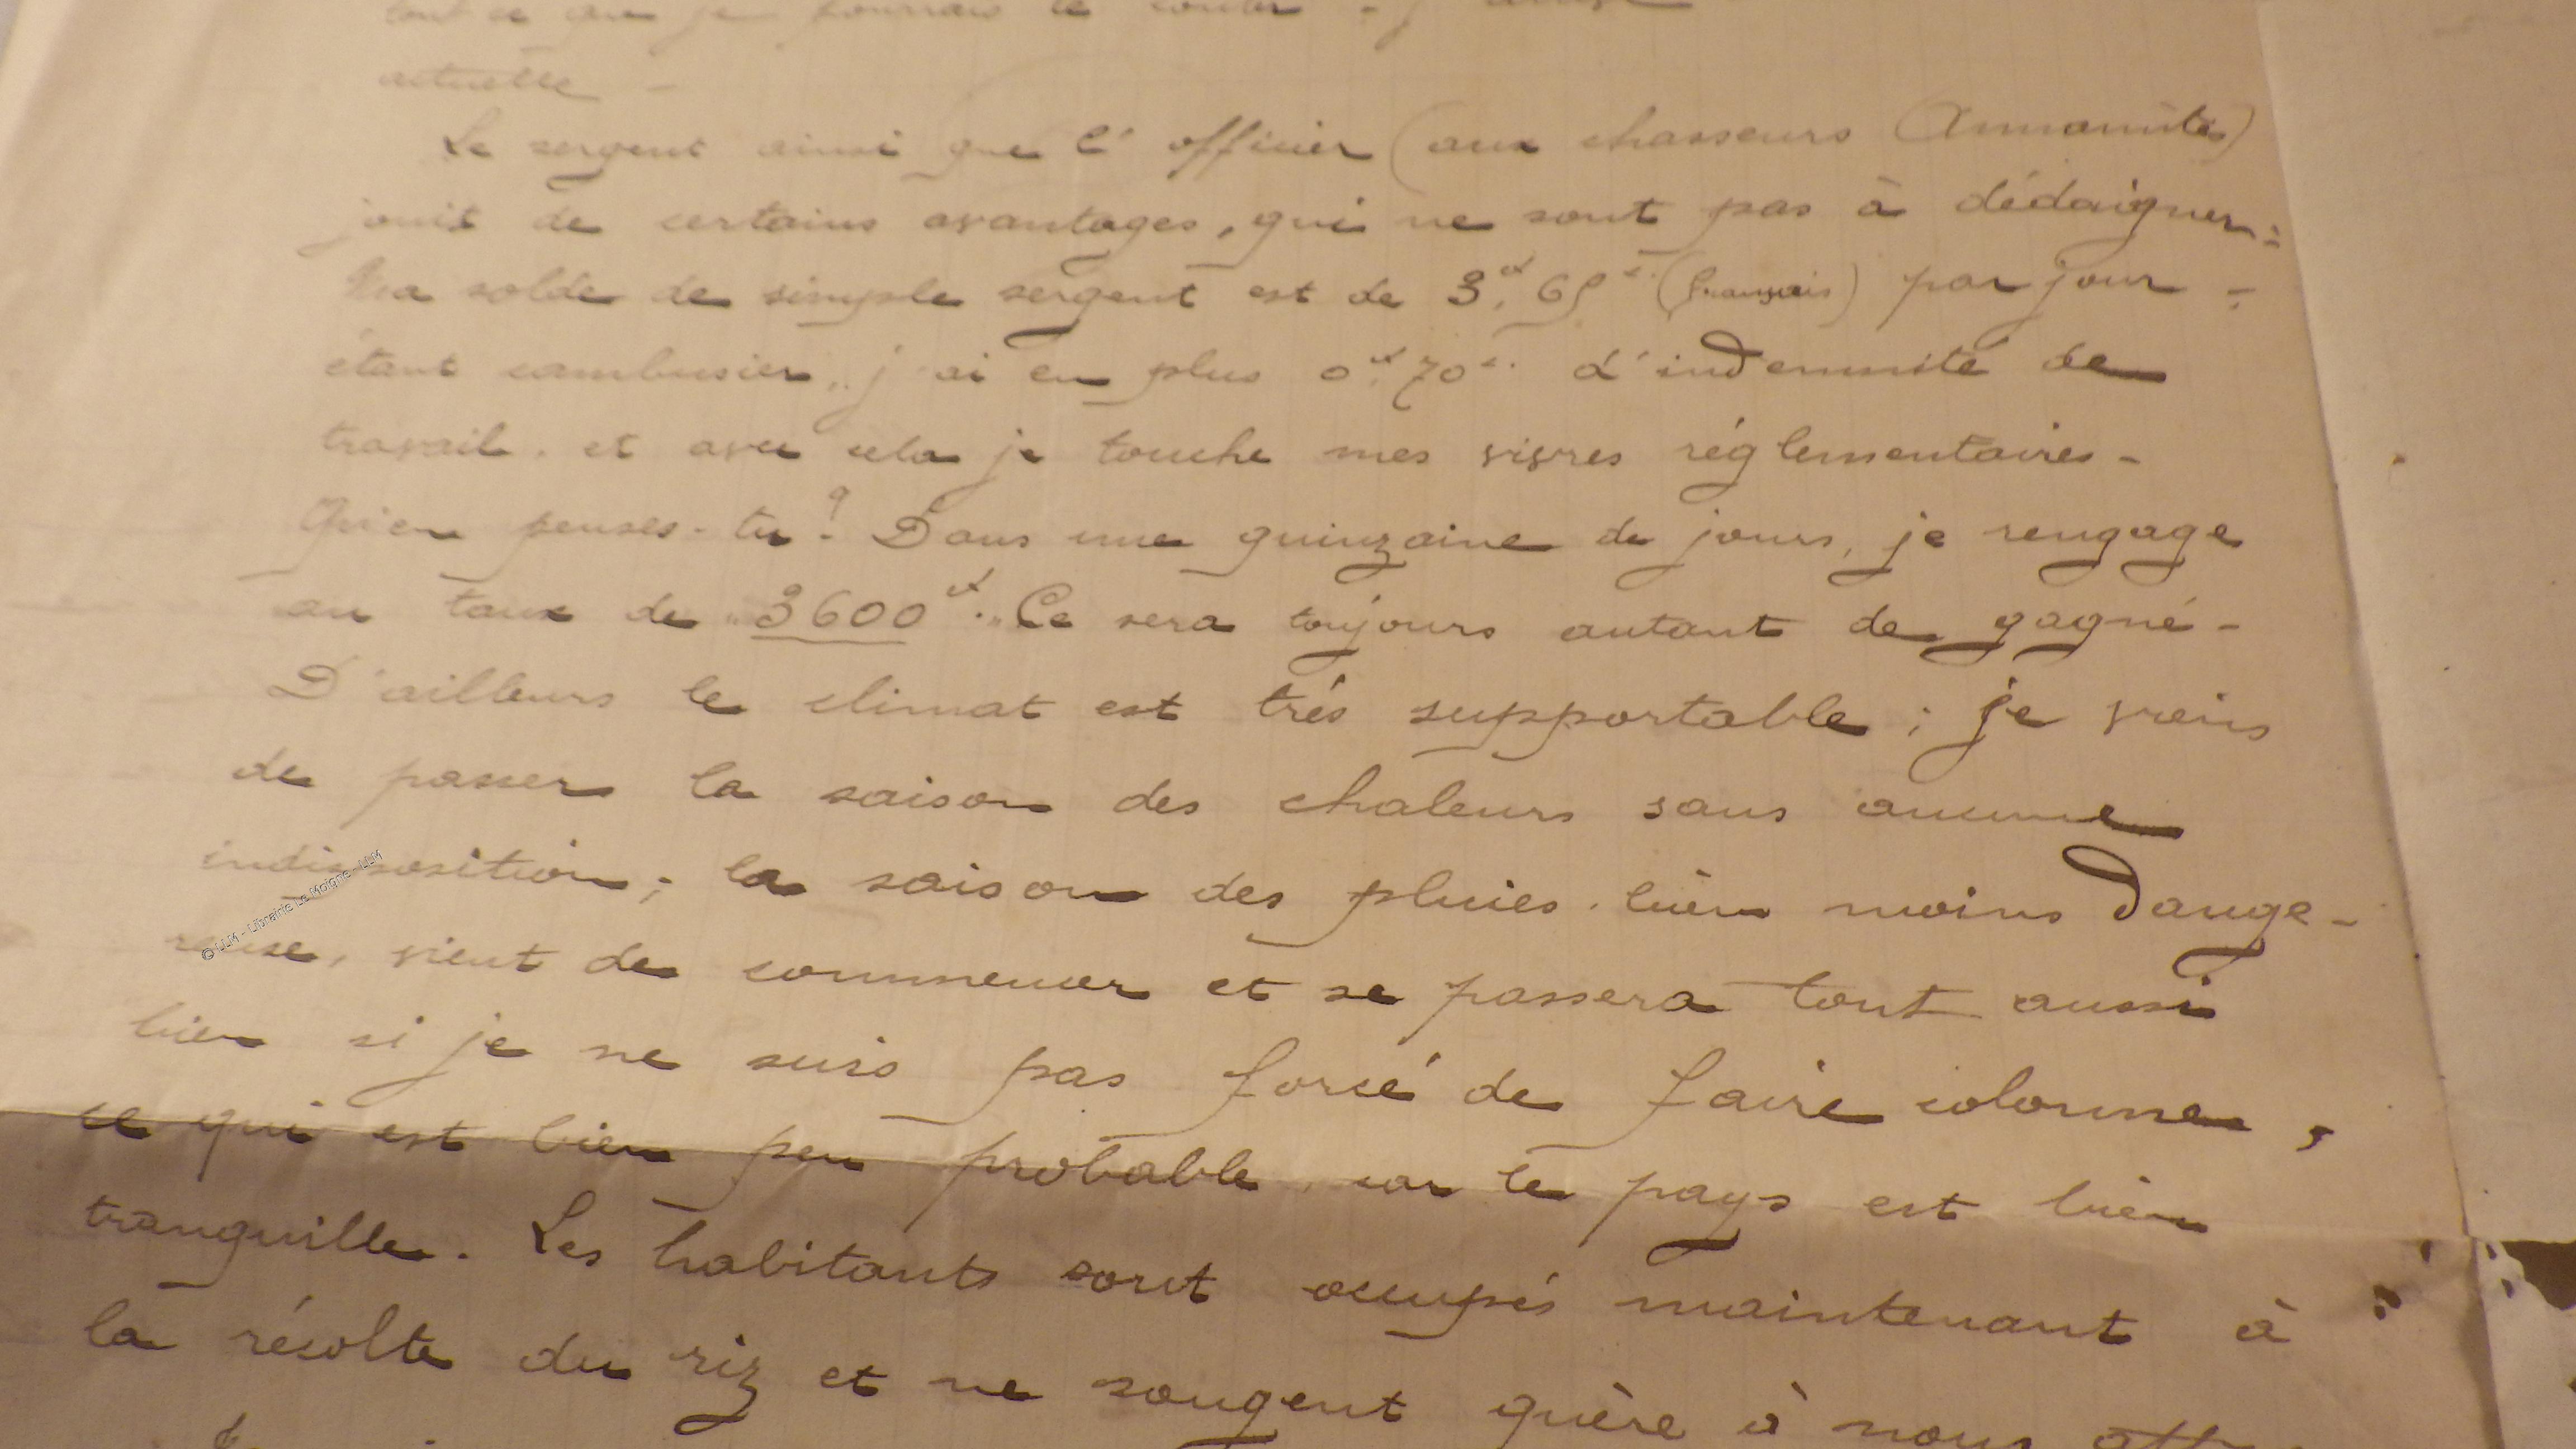 tout ce que je pourrais te conter
actuelle -
Le sergent ainsi que l'officier (aux chasseurs Annamites)
jouit de certains avantages, qui ne sont pas à dédaigner :
Ma solde de simple sergent est de 3f,65c (français) par jour -
étant cambusier, j'ai en plus 0f,70c. d'indemnité de
travail. et avec cela je touche mes vivres réglementaires -
Qu'en penses-tu ? Dans une quinzaine de jours, je rengage
au taux de "3600f." Ce sera toujours autant de gagné -
D'ailleurs le climat est très supportable ; je viens
de passer la saison des chaleurs sans aucune
indisposition ; la saison des pluies, bien moins dange-
reuse, vient de commencer et se passera tout aussi
bien si je ne suis pas forcé de faire colonne,
ce qui est bien peu probable, car le pays est bien
tranquille. Les habitants sont occupés maintenant à
la récolte du riz et ne songent guère à nous
© LLM - Librairie Le Moigne - LLM